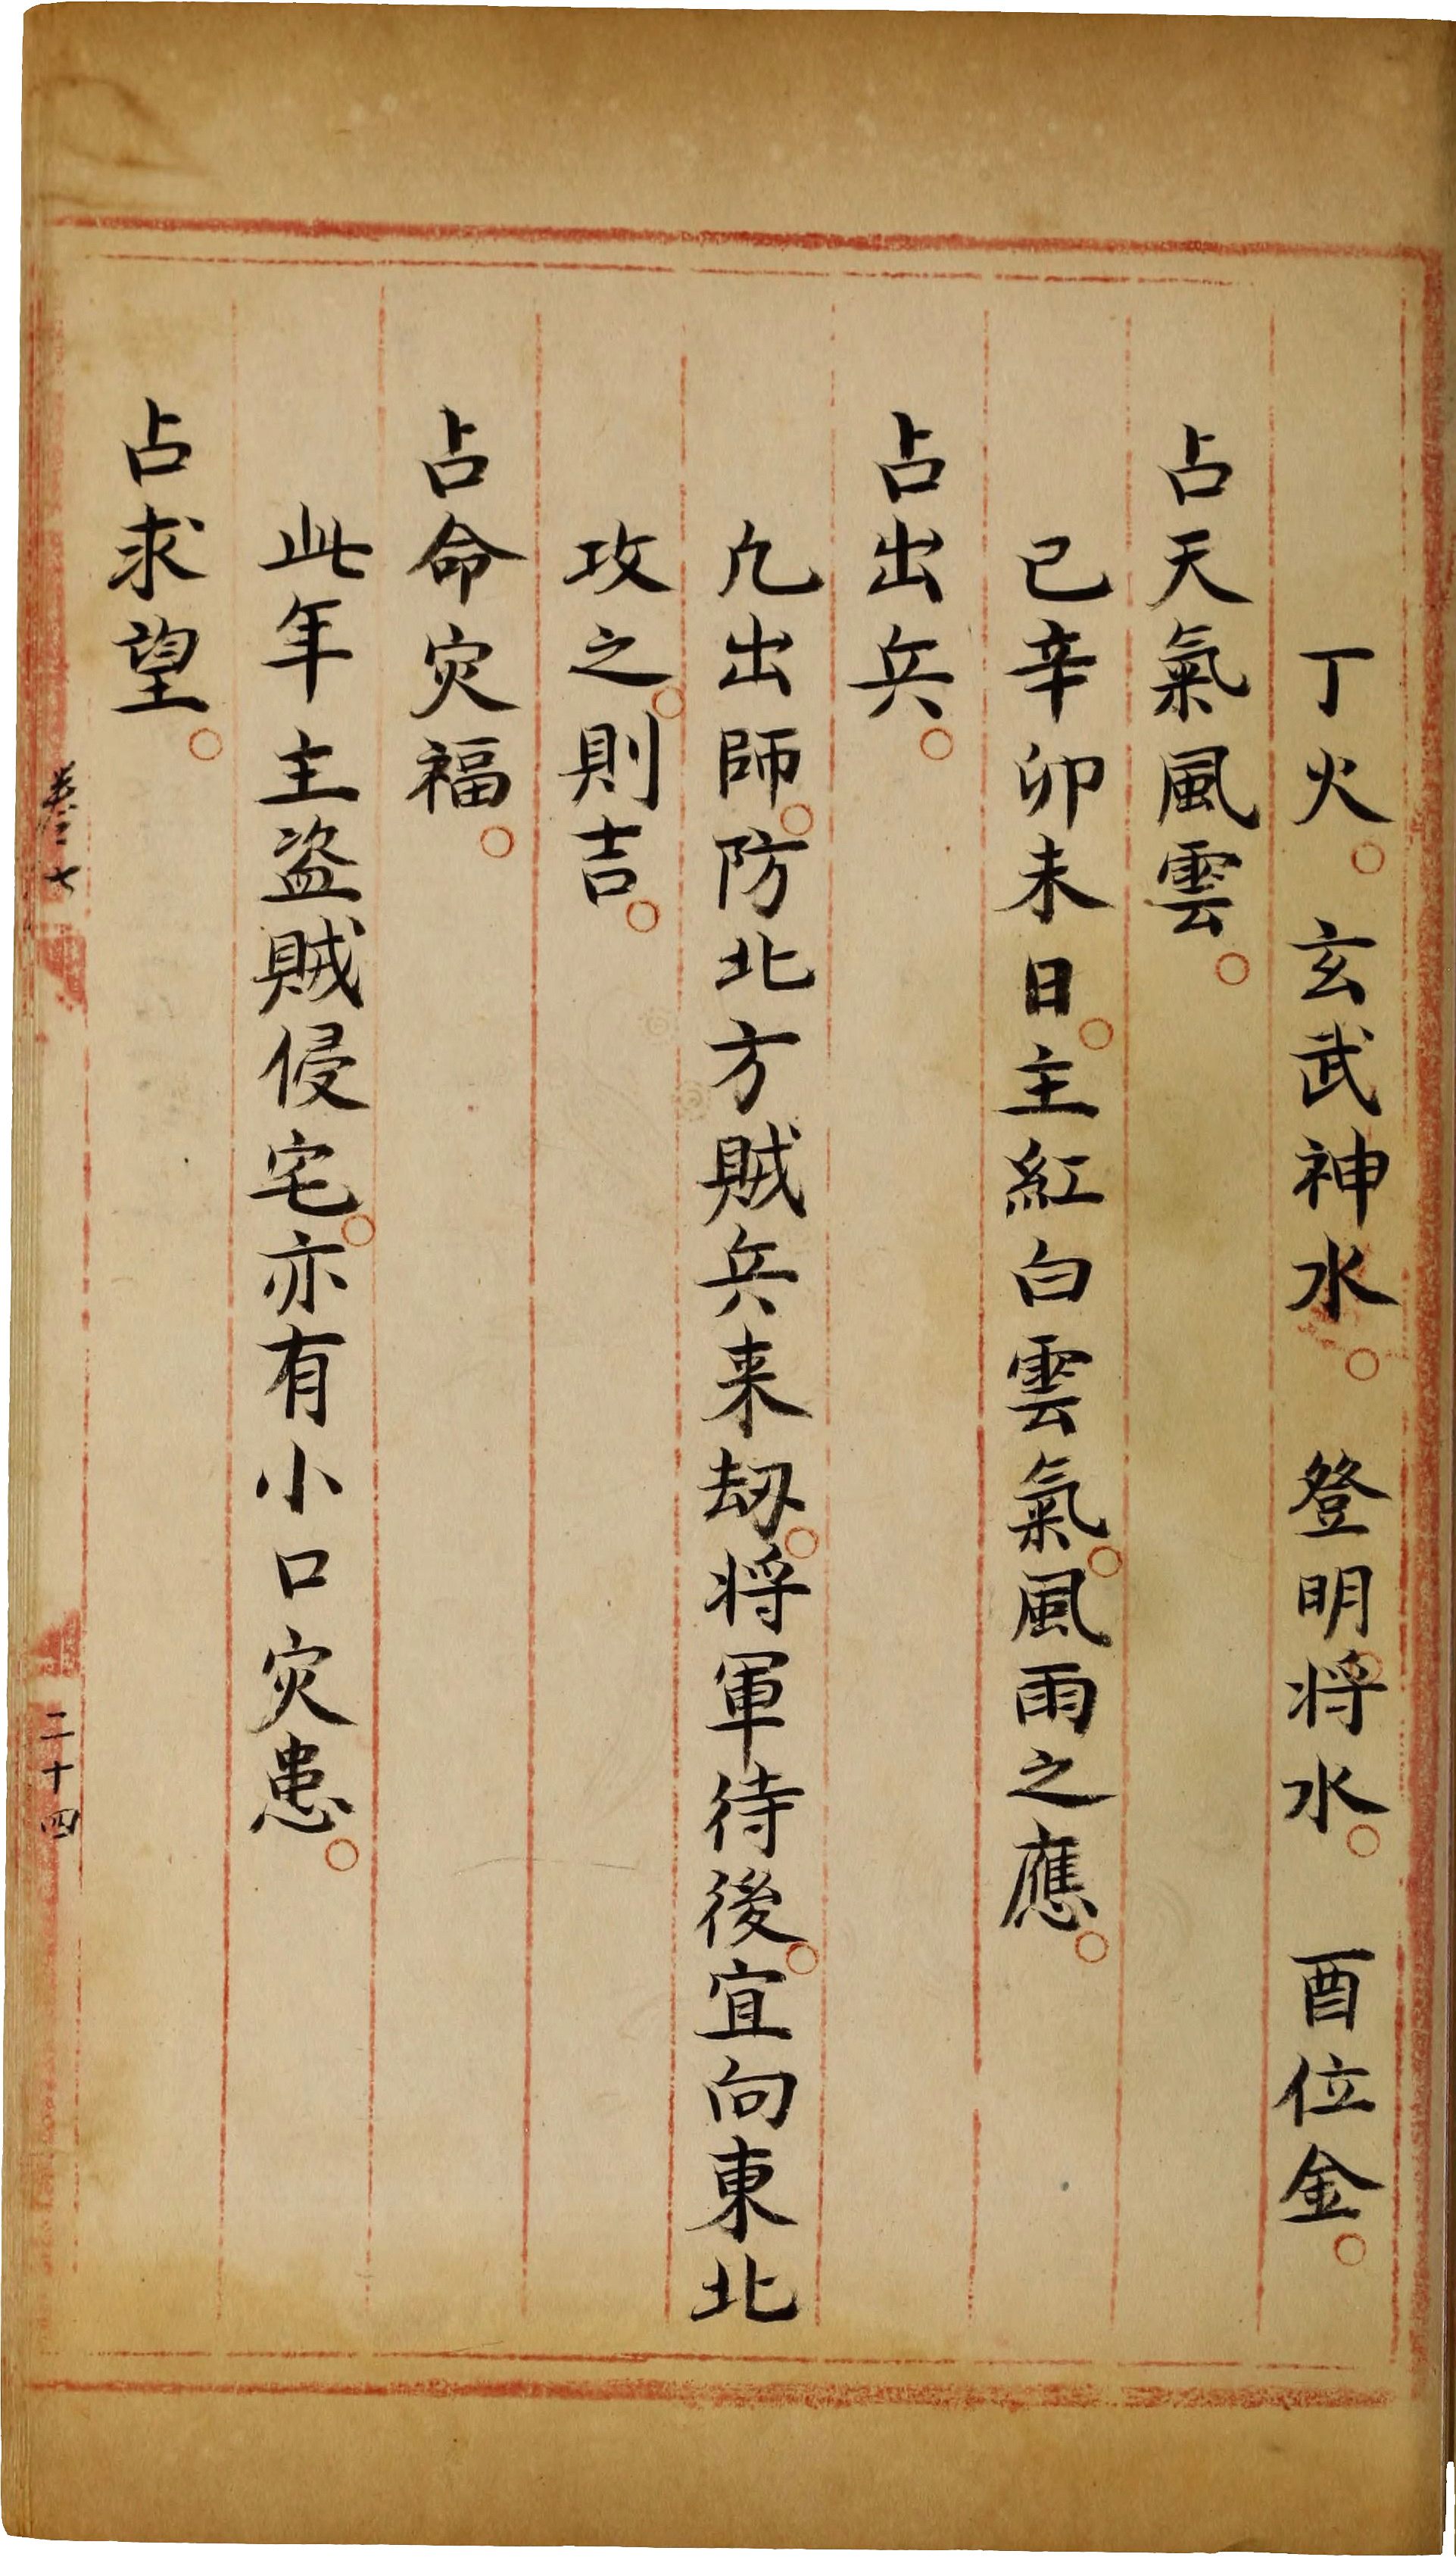 丁火。玄武神水。登明将水。酉位金。
占天氣風雲。
已辛卯未日。主紅白雲氣。風雨之應。
占出兵。
凢出師。防北方賊兵来刼。将軍待後。宜向東北
攻之。則吉。
占命灾福。
此年主盗賊侵宅。亦有小口灾患。
占求望。
卷七
二十四